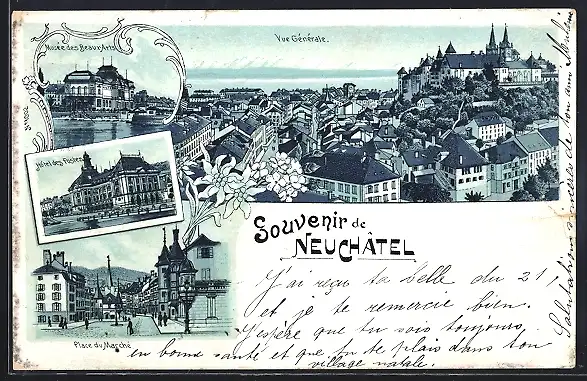 Musée des Beaux Arts
Vue Générale.
Hôtel des Postes
Place du Marché
Souvenir de
NEUCHÂTEL
J'ai reçu ta belle du 21
et je te remercie bien.
J'espère que tu sois toujours
en bonne santé et que tu te plais dans ton
village natale.
Salutations sincères de ton ami